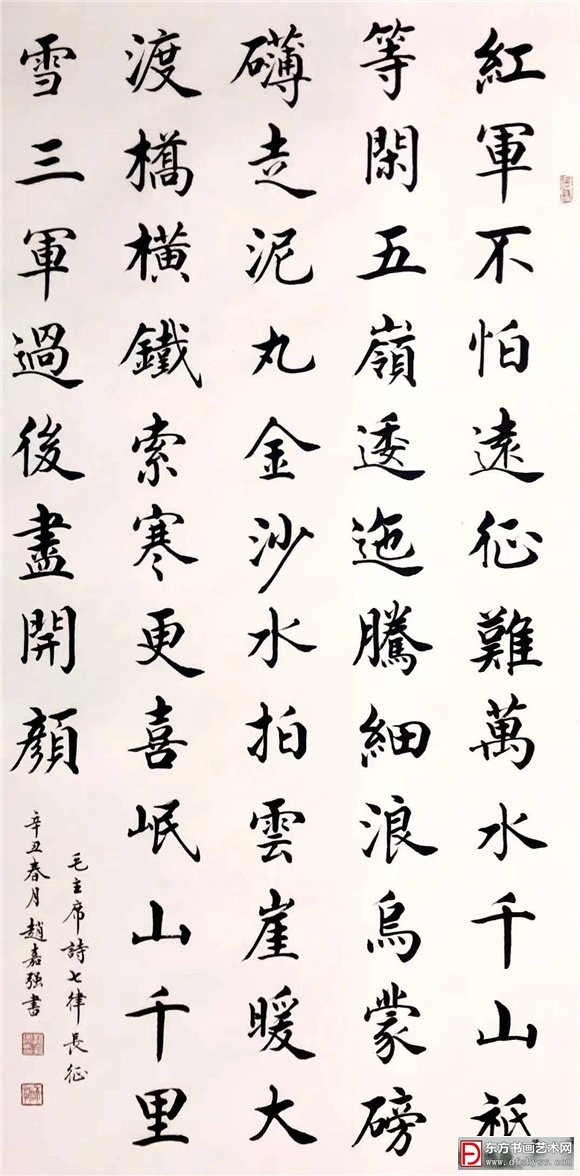 紅軍不怕遠征難萬水千山祇
等閑五嶺逶迤騰細浪烏蒙磅
礴走泥丸金沙水拍雲崖暖大
渡橋橫鐵索寒更喜岷山千里
雪三軍過後盡開顏
毛主席詩七律長征
辛丑春月趙嘉强書
东方书画艺术网
www.dfshysw.com